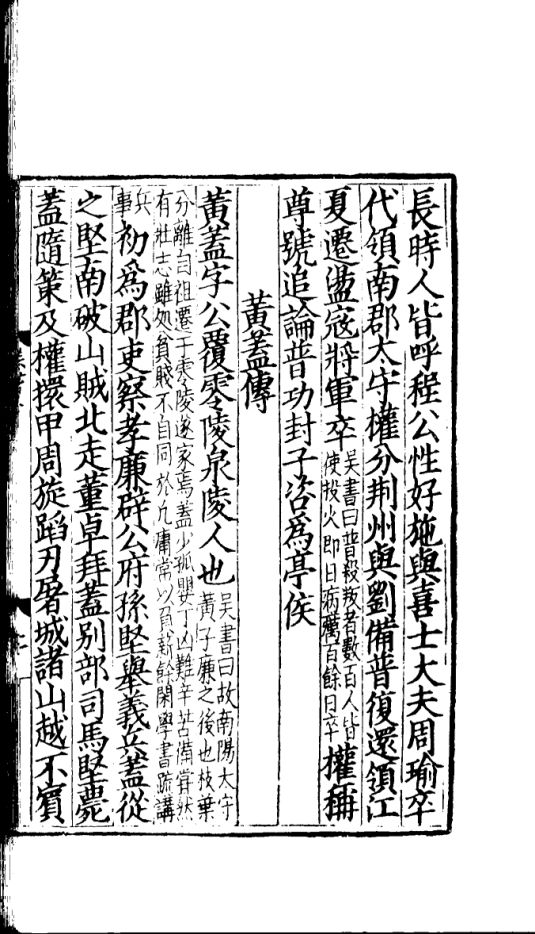 長時人皆呼程公性好施與喜士大夫周瑜卒
代領南郡太守權分荆州與劉備普復還領江
夏遷盪宼將軍卒吳書曰普殺叛者數百人皆使投火即日病癘百餘日卒權稱
尊號追論普功封子咨爲亭侯
黃蓋傳
黃蓋字公覆零陵泉陵人也吳書曰故南陽太守黃子廉之後也枝葉
分離自祖遷于零陵遂家焉蓋少孤嬰丁凶難辛苦備甞然有壯志雖処貧賤不自同於凡庸常以負薪餘閑學書䟽講
兵事初爲郡吏察孝廉辟公府孫堅舉義兵蓋從
之堅南破山賊北走董卓拜蓋别部司馬堅薨
蓋隨策及權擐甲周旋蹈刃屠城諸山越不賔